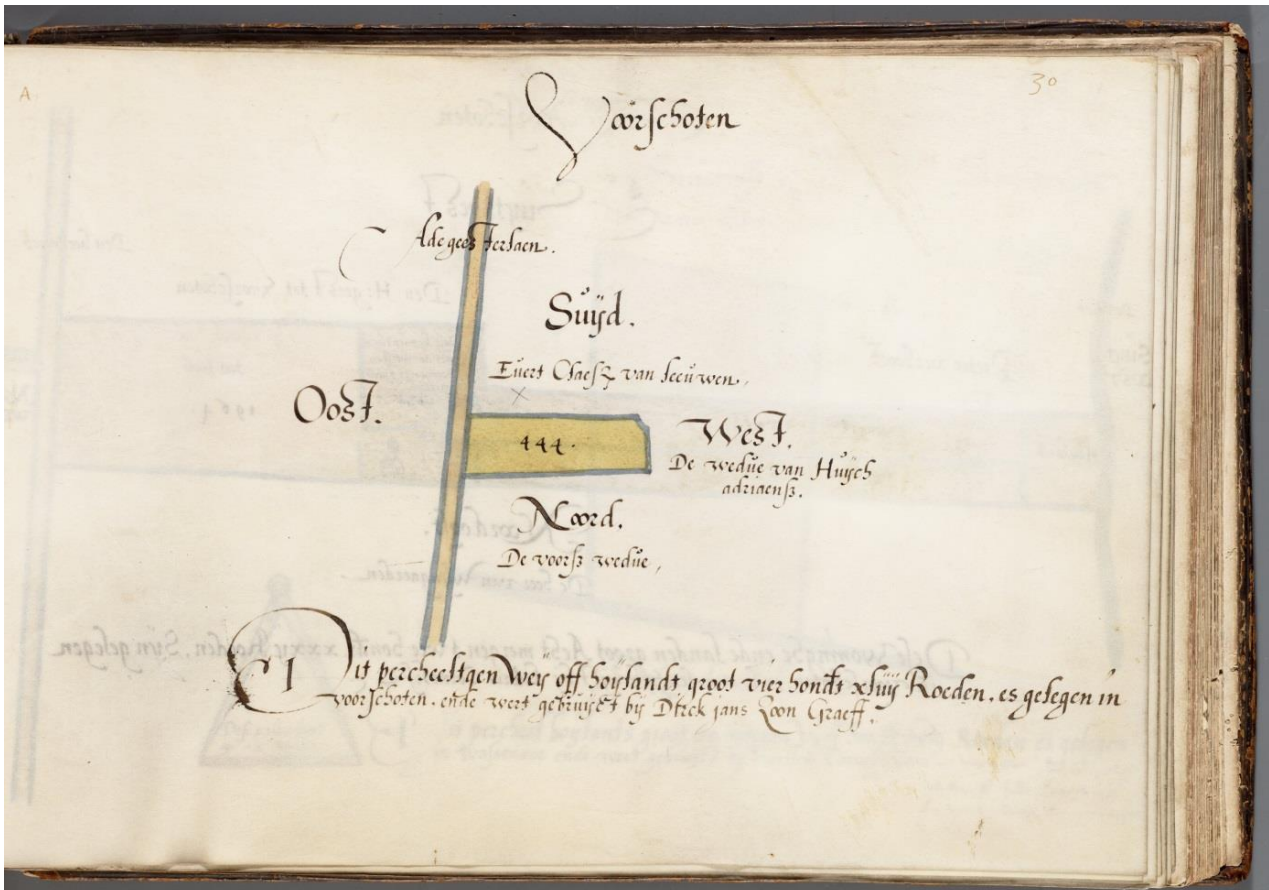 A
30
Voorschoten
Adegeesterlaen.
Suÿd.
Evert Claesz van leeuwen,
Oost.
444.
West.
De wedue van Huÿch
adriaensz.
Noord.
De voorsz wedue,
Dit percheeltgen Weÿ off hoÿlandt groot vier hondt xliiij Roeden. es gelegen in
voorschoten. ende wert gebruÿct bij Dirck jans Zoon Graeff.